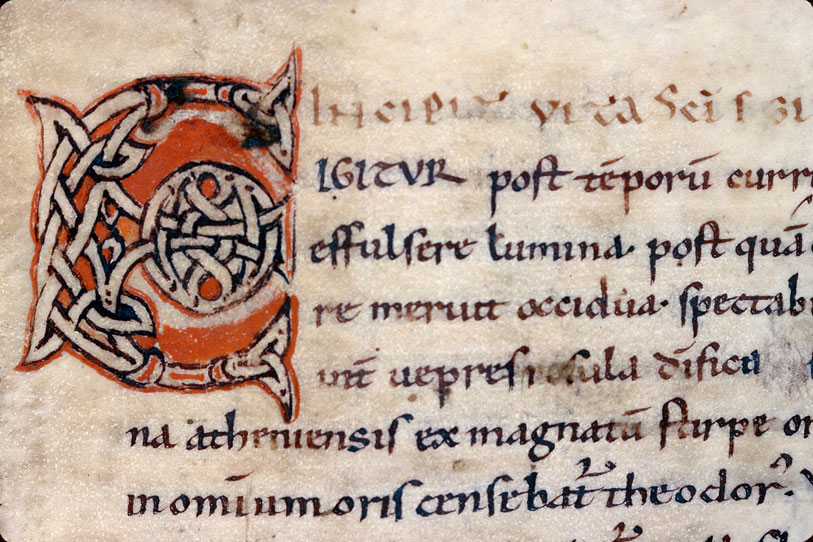 Incipit vita Sci
EIGITVR post tēporū curr
effulsere lumina. post quā
re meruit occidua. spectab
uepres rosula
na atheniensis ex magnatū stirpe or
in omium oris censebat̄ theodor᷒.